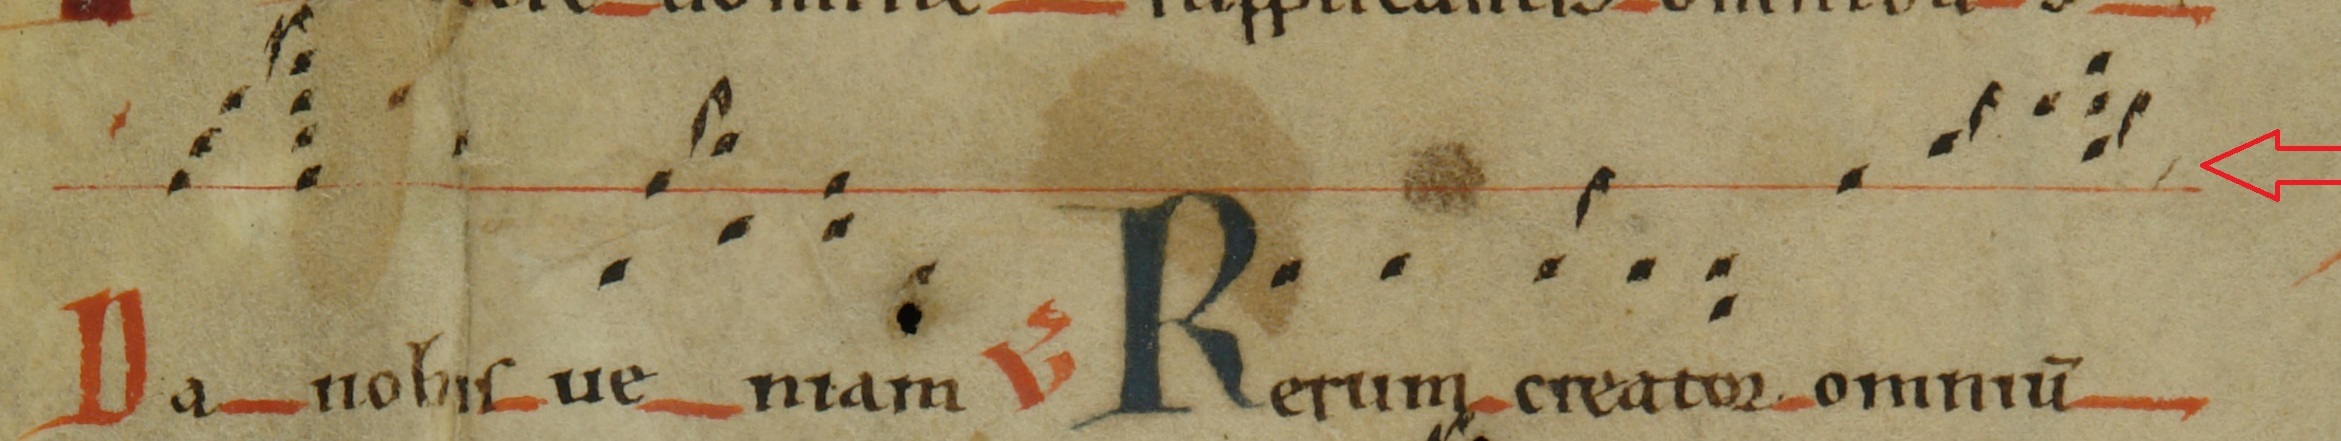 supplicantis omnibus
Da nobis ueniam ℣ Rerum creator omniū